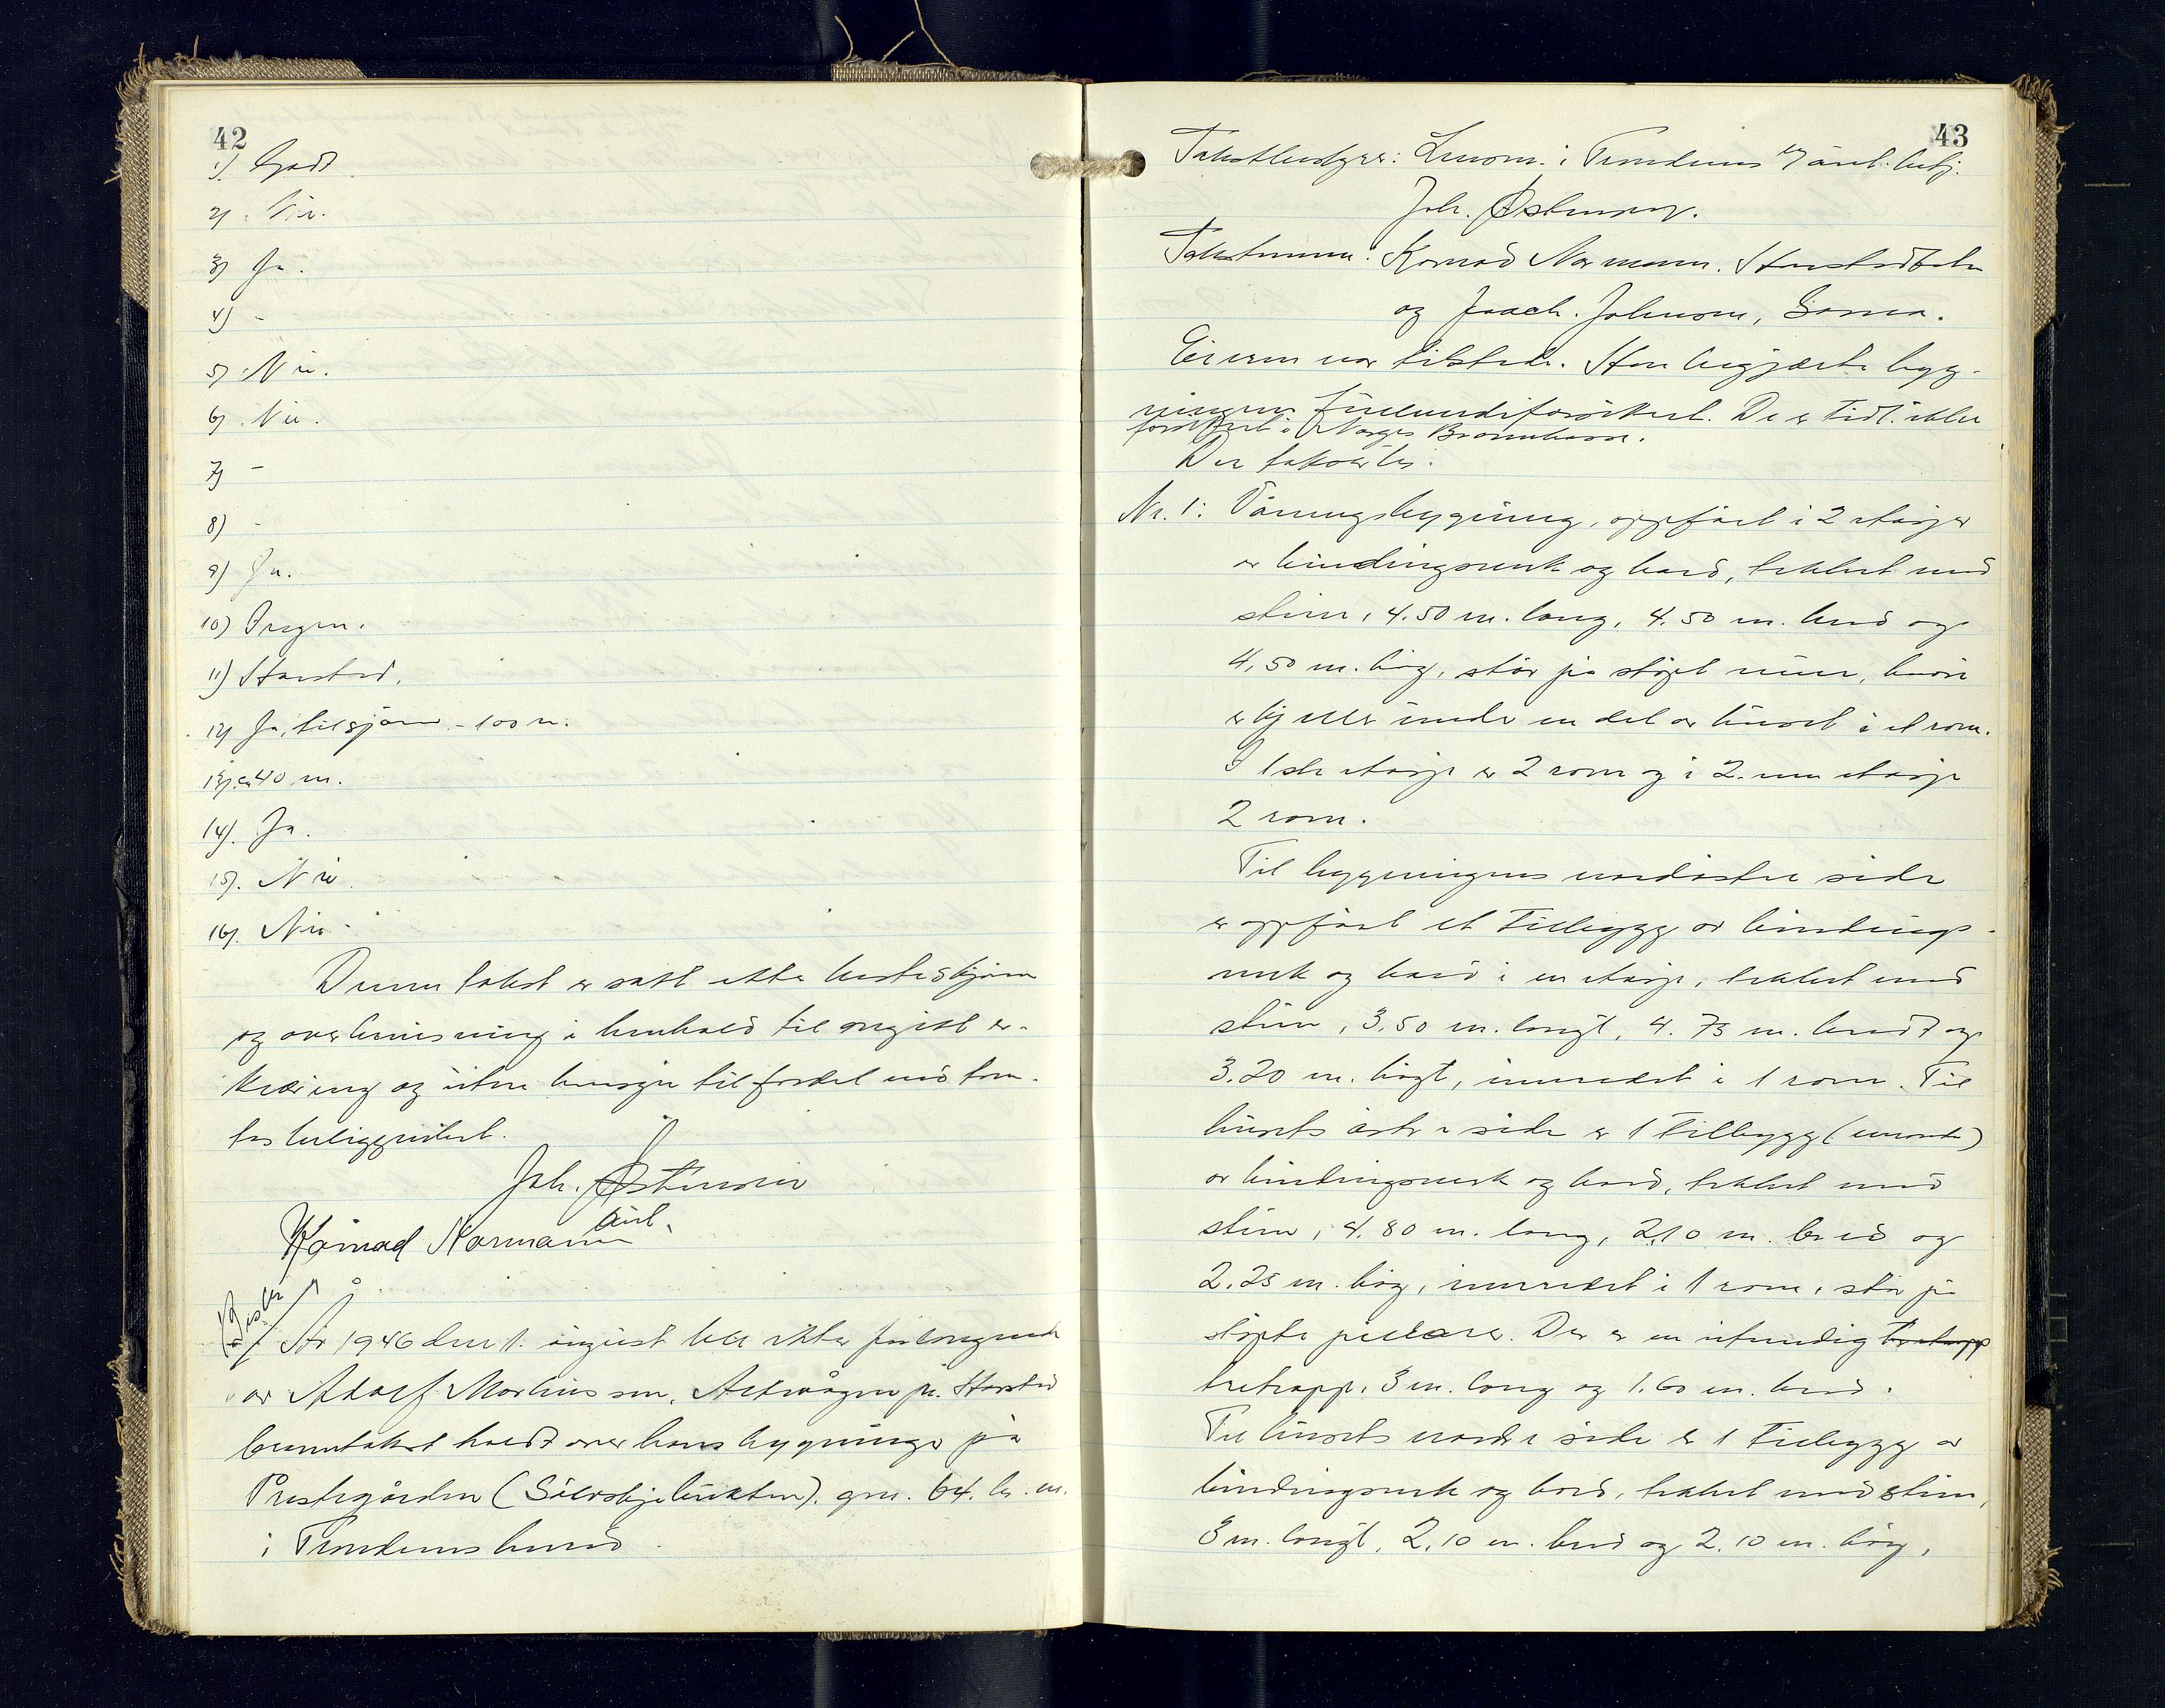 42
1) Godt
2) Nei.
3) Ja.
4) -
5) Nei.
6) Nei.
7) -
8) -
9) Ja.
10) Ingen.
11) Harstad.
12) Ja, til sjøen - 100 m.
13) ca 40 m.
14). Ja.
15). Nei.
16). Nei.
Denne takst er satt etter beste skjønn
og overbevisning i henhold til avgitt er-
klæring og uten hensyn til fordel ved tom-
tens beliggenhet.
Joh. Østensen
Konrad Normann
År 1946 den 1. august ble etter forlangende
av Adolf Martinussen, pr. Harstad
branntakst holdt over hans bygninger på
Prestegården (). gnr. 64. br. nr.
i Trondenes herred.
43
Takstbestyrer: Lensm. i Trondenes e/ aut. betj.
Joh. Østensen.
Takstmenn: Konrad Normann. Harstadbotn
og Joach. Johnsen, Gansås.
Eieren var tilstede. Han begjærte byg-
ningene forsikret. De er tidl. ikke
forsikret i Norges Brannkasse.
Der taksertes:
Nr. 1: Våningsbygning, oppført i 2 etasjer
av bindingsverk og bord, tekket med
stein, 4.50 m. lang, 4.50 m. bred og
4,50 m. høg, står på støpt mur, hvori
er kjeller under en del av huset i et rom.
I 1ste etasje er 2 rom og i 2.nen etasje
2 rom.
Til bygningens nordøstre side
er oppført et tilbygg av bindings-
verk og bord i en etasje, tekket med
stein, 3,50 m. langt, 4.75 m. bredt og
3.20 m. høgt, innredet i 1 rom. Til
husets østre side er 1 tilbygg (veranda)
av bindingsverk og bord, tekket med
stein, 4.80 m. lang, 2,10 m. bred og
2.25 m. høg, innredet i 1 rom, står på
støpte pillarer. Der er en utvendig tretrapp
tretrapp, 3 m. lang og 1.60 m. bred.
Til husets nordre side er 1 tilbygg av
bindingsverk og bord, tekket med stein,
3 m. langt, 2,10 m. bred og 2.10 m. høg,